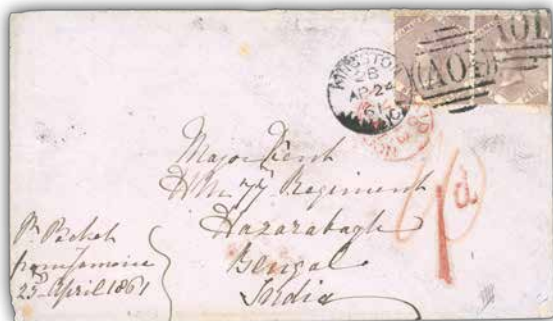 KINGSTON
2B
AP 24
61
A01
A01
Major Dent
H.M. 77 Regiment
Hazarabagh
Bengal
India
1d.
Pr. Packet
from Jamaica
25th April 1861